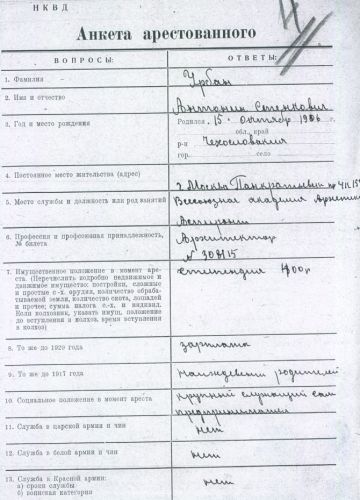 НКВД
Анкета арестованного
ВОПРОСЫ: ОТВЕТЫ:
1. Фамилия Урбан
2. Имя и отчество Антонин
3. Год и место рождения Родился 15 октября 1906
обл. край
р-н Чехословакия
гор. село
4. Постоянное место жительства (адрес) г. Москва
5. Место службы и должность или род занятий Всесоюзная академия
Аспирант
6. Профессия и профсоюзная принадлежность, Архитектор
№ билета
7. Имущественное положение в момент аре- стипендия
ста. (Перечислить подробно недвижимое и
движимое имущество: постройки, сложные
и простые с.-х. орудия, количество обраба-
тываемой земли, количество скота, лошадей
и прочее; сумма налога с.-х. и индивид.
Если колхозник, указать имущ. положение
до вступления в колхоз, время вступления
в колхоз)
8. То же до 1929 года зарплата
9. То же до 1917 года родителей
10. Социальное положение в момент ареста крупный служащий
11. Служба в царской армии и чин нет
12. Служба в белой армии и чин нет
13. Служба в Красной армии: нет
а) сроки службы
б) воинская категория